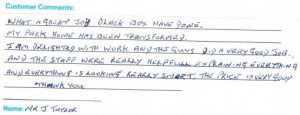 Customer Comments:
WHAT A GREAT JOB BLACK BOX HAVE DONE.
MY PARK HOME HAS BEEN TRANSFORMED.
I AM DELIGHTED WITH WORK AND THE GUYS DID A VERY GOOD JOB.
AND THE STAFF WERE REALLY HELPFULL EXPLAINING EVERYTHING
AND EVERYTHING IS LOOKING REALLY SMART. THE PRICE IS VERY GOOD
THANK YOU
Name: MR J TAYLOR